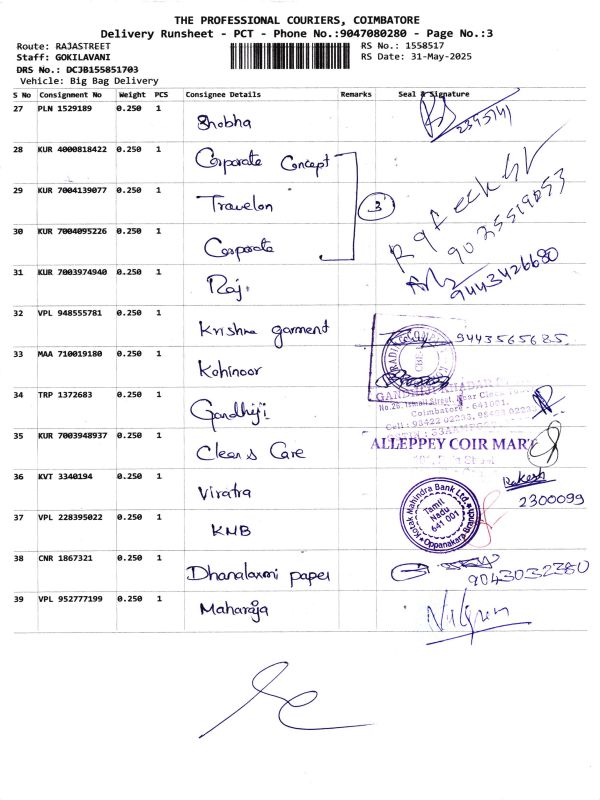 THE PROFESSIONAL COURIERS, COIMBATORE
Delivery Runsheet - PCT - Phone No.:9047080280 - Page No.:3
Route: RAJASTREET
RS No.: 1558517
Staff: GOKILAVANI
RS Date: 31-May-2025
DRS No.: DCJB155851703
Vehicle: Big Bag Delivery
S No Consignment No Weight PCS Consignee Details Remarks Seal & Signature
27 PLN 1529189 0.250 1 Shobha 2345741
28 KUR 4000818422 0.250 1 Corporate Concept
29 KUR 7004139077 0.250 1 Travelon 3 9025519053
30 KUR 7004095226 0.250 1 Corporate
31 KUR 7003974940 0.250 1 Raj. 9443426680
32 VPL 948555781 0.250 1 Krishna garment 9443565625.
33 MAA 710019180 0.250 1 Kohinoor
34 TRP 1372683 0.250 1 Gandhiji
GANDHIJI KHADAR
Coimbatore - 641001.
35 KUR 7003948937 0.250 1 Clean & Care
ALLEPPEY COIR MART
36 KVT 3340194 0.250 1 Viratra Rakesh
2300099
37 VPL 228395022 0.250 1 KMB
Kotak Mahindra Bank Ltd.
Tamil
Nadu
641 001
Oppanakara Branch
38 CNR 1867321 0.250 1 Dhanalaxmi paper 9043032380
39 VPL 952777199 0.250 1 Maharaja